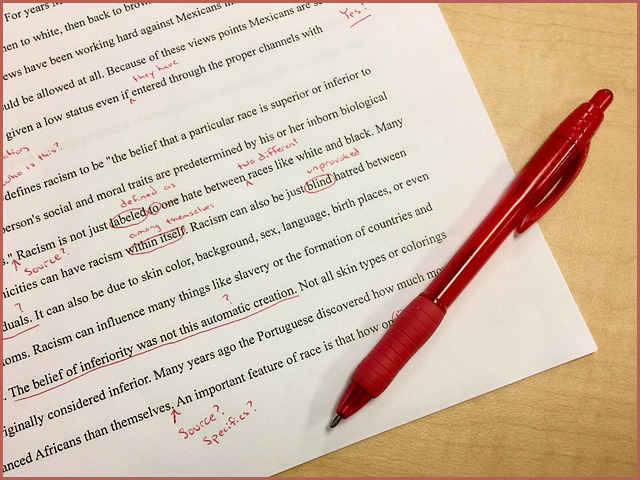 For years M
then to white, then back to brow
ews have been working hard against Mexicans
Yes!
ould be allowed at all. Because of these views points Mexicans are
they have
given a low status even if entered through the proper channels with
ation
who is this?
defines racism to be "the belief that a particular race is superior or inferior to
person's social and moral traits are predetermined by his or her inborn biological
two different
defined as
unprovoked
s." Racism is not just labeled to one hate between races like white and black. Many
Source?
among themselves
nicities can have racism within itself. Racism can also be just blind hatred between
?
duals. It can also be due to skin color, background, sex, language, birth places, or even
?
oms. Racism can influence many things like slavery or the formation of countries and
The belief of inferiority was not this automatic creation. Not all skin types or colorings
riginally considered inferior. Many years ago the Portuguese discovered how much
anced Africans than themselves. An important feature of race is that how
Source?
Specifics?